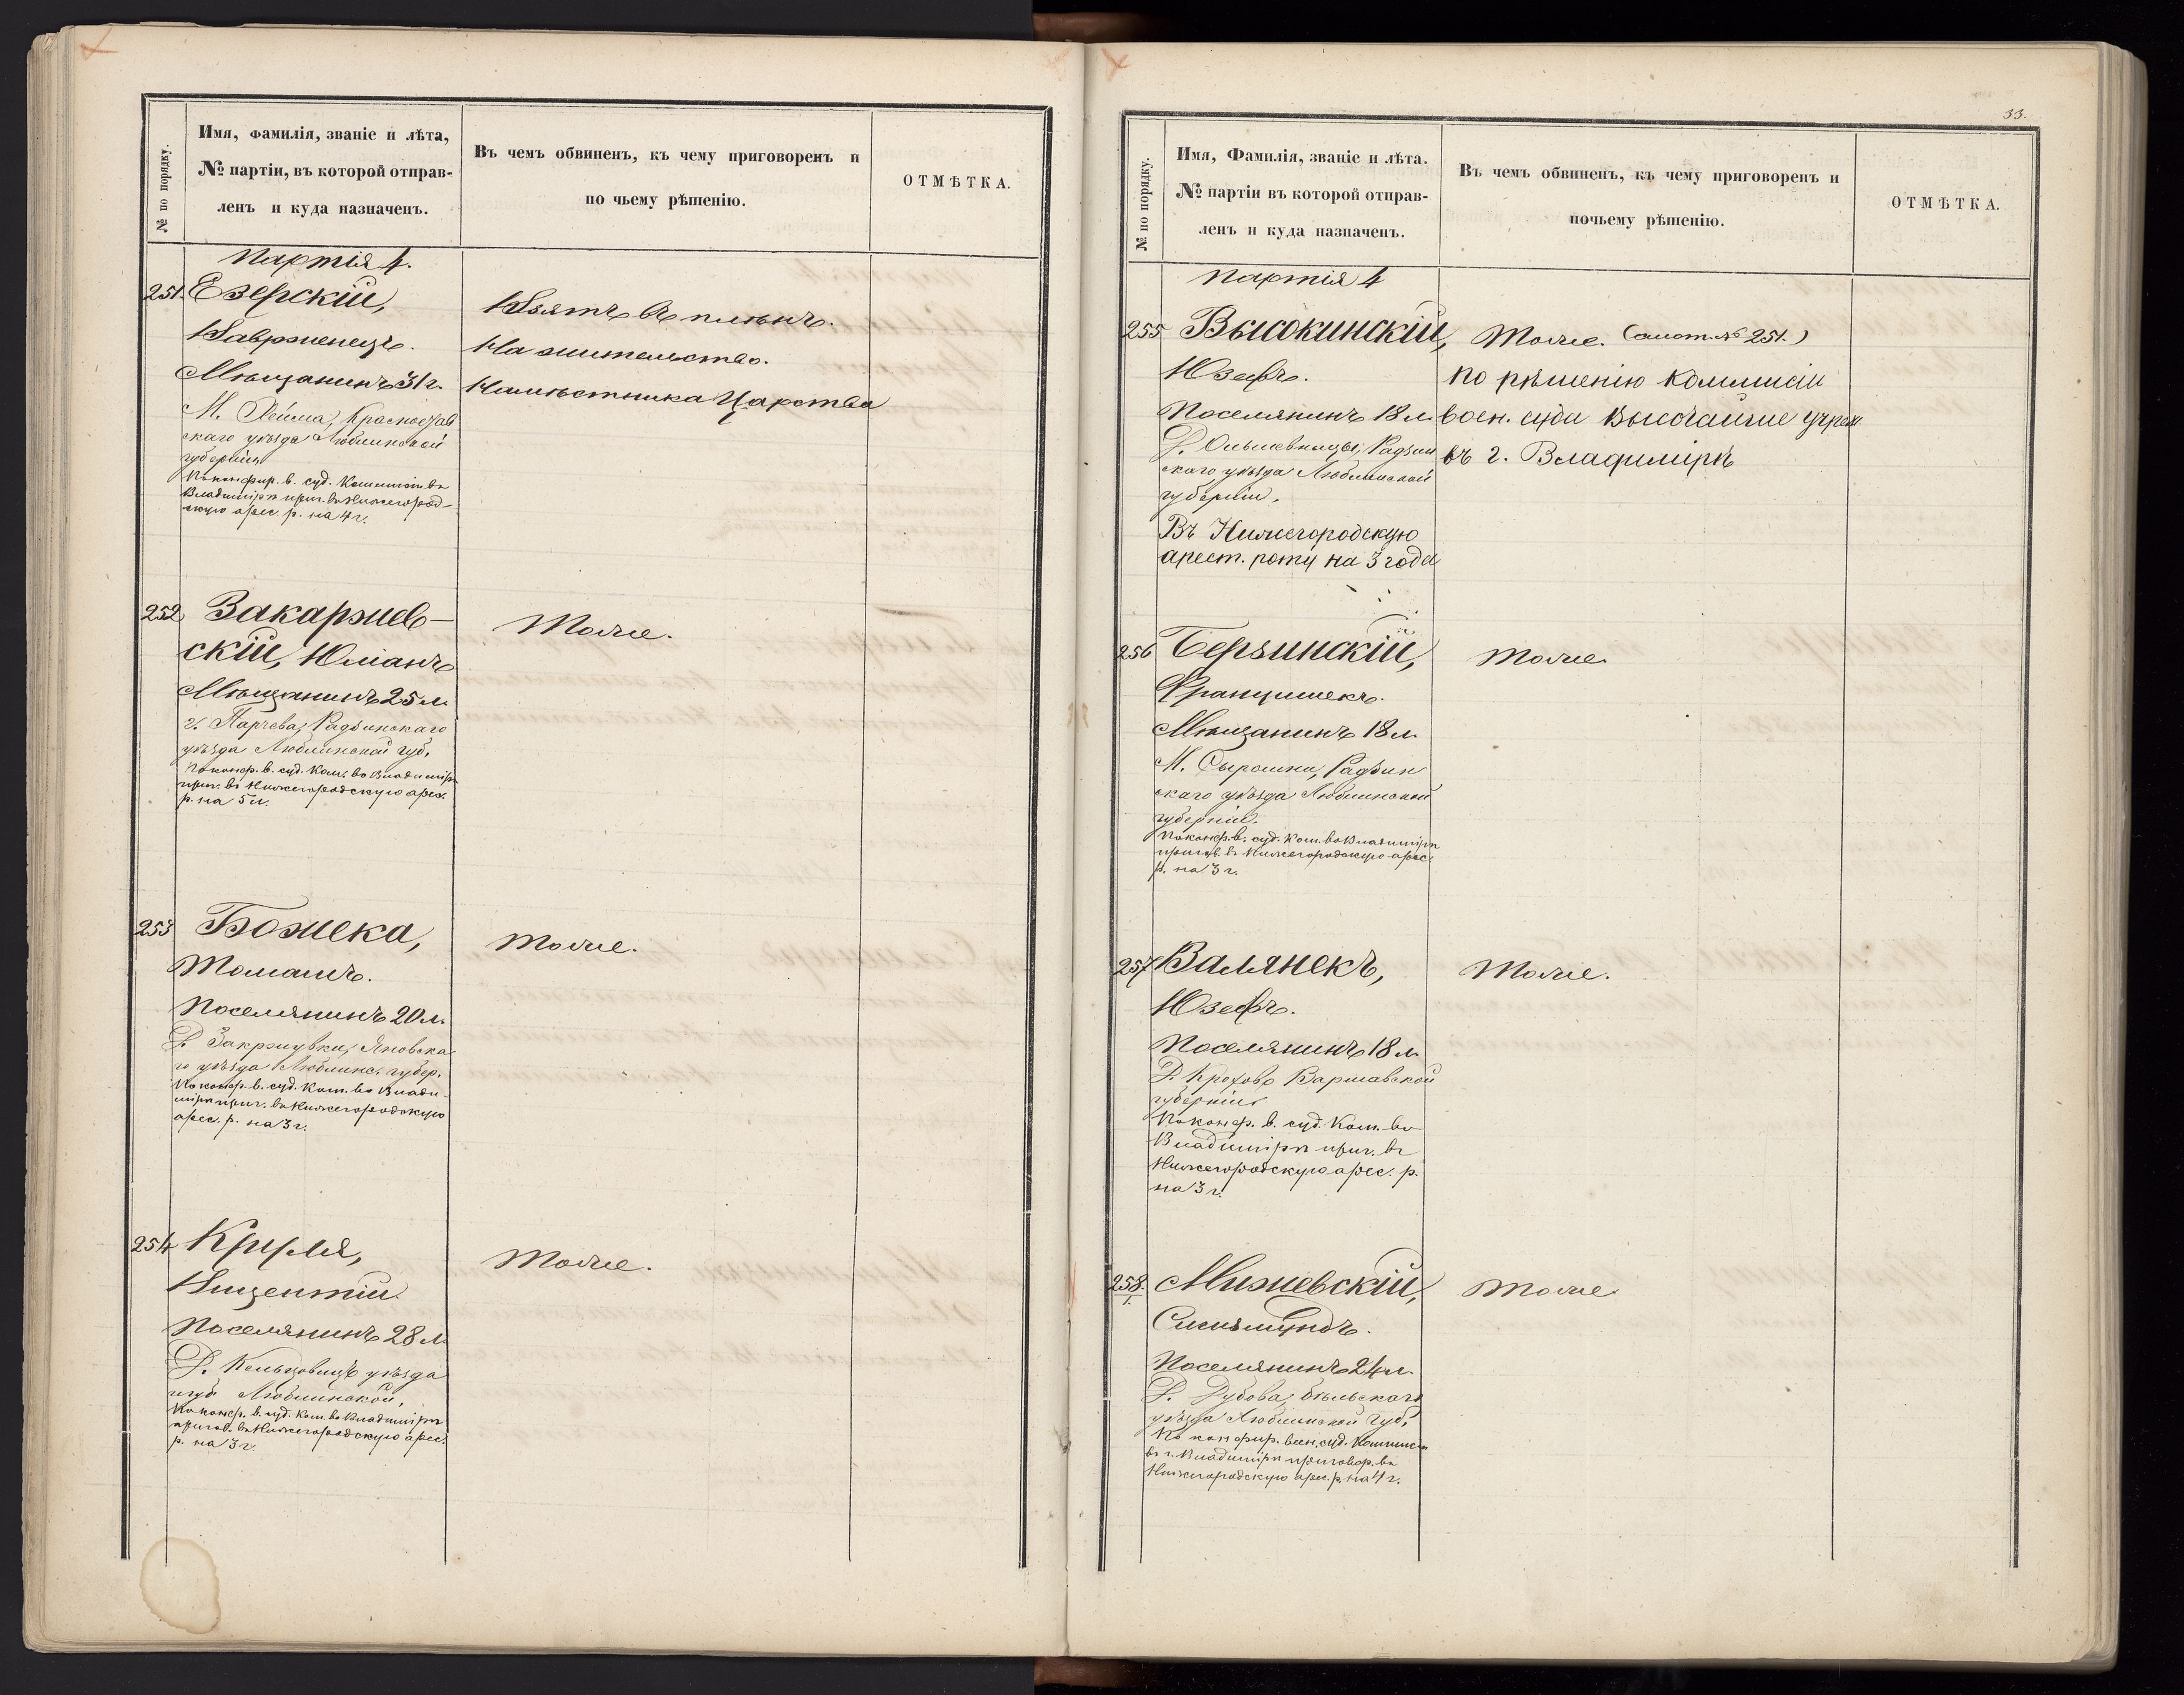 № по порядку.
Имя, Фамилія, званіе и лѣта,
№ партіи, въ которой отправ-
ленъ и куда назначенъ.
Въ чемъ обвиненъ, къ чему приговоренъ и
по чьему рѣшенію.
ОТМѢТКА.
Партія 4.
251. Езерскій,
Вавржинецъ.
Мѣщанинъ 31 г.
М. Краснostав
скаго уѣзда Люблинской
губерніи
По конфир. в. суд. Коммисіи во
Владимірѣ приг. въ Нижегород-
скую арес. р. на 4 г.
Взятъ въ плѣнъ.
На жительство.
Намѣстника Царства
252 Закаржев-
скій, Юліанъ
Мѣщанинъ 25 л.
г. Парчева, Радзинскаго
уѣзда Люблинской губ.
По конф. в. суд. Ком. во Владимірѣ
приг. въ Нижегородскую арес.
р. на 5 л.
Тоже.
253 Божека,
Томашъ.
Поселянинъ 20 л.
Д. Закржувки, Яновска
го уѣзда Люблинс. губер.
По конф. в. суд. Ком. во Влади
мірѣ приг. въ Нижегородскую
арес. р. на 3 г.
Тоже.
254 
Винцентій
Поселянинъ 28 л
Д. уѣзда
губ Люблинской.
По конф. в. суд. Ком. во Владимірѣ
пригов. въ Нижегородскую арес.
р. на 3 г.
Тоже.
33.
№ по порядку.
Имя, Фамилія, званіе и лѣта.
№ партіи въ которой отправ-
ленъ и куда назначенъ.
Въ чемъ обвиненъ, къ чему приговоренъ и
почьему рѣшенію.
ОТМѢТКА.
Партія 4
255 Высокинскій,
Юзефъ.
Поселянинъ 18 л
Д. Ольшевницы, Радзин
скаго уѣзда Люблинской
губерніи.
Въ Нижегородскую
арест. роту на 3 года
Тоже. (смот. № 251.)
по рѣшенію коммисіи
воен. суда высочайше учреж.
въ г. Владимірѣ
256 Берзинскій,
Францишекъ.
Мѣщанинъ 18 л.
М. Радзин
скаго уѣзда Люблинской
губерніи.
По конф. в. суд. Ком. во Владимірѣ
пригов. въ Нижегородскую арес.
р. на 3 г.
Тоже
257 Валянекъ,
Юзефъ.
Поселянинъ 18 л.
Д. Крохово Варшавской
губерніи
По конф. в. суд. Ком. во
Владимірѣ приг. въ
Нижегородскую арес. р.
на 3 г.
Тоже.
258. Мижевскій,
1.
Сигизмундъ.
Поселянинъ 24 л.
Д. Дубова, Бѣльскаго
уѣзда Люблинской губ.
По конфир. воен. суд. Коммисіи
въ г. Владимірѣ приговор. въ
Нижегородскую арес. р. на 4 г.
Тоже